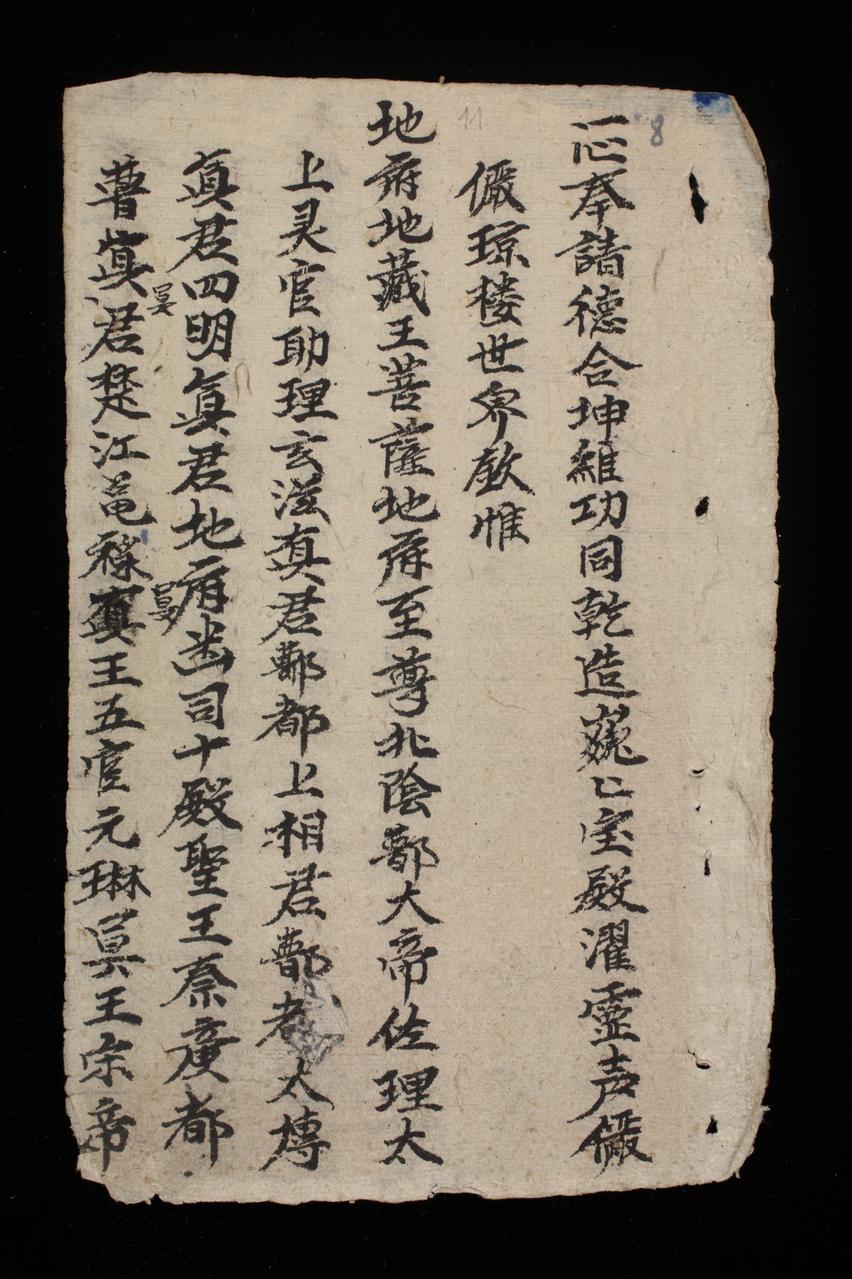 8
一心奉請德合坤維功同乾造巍〻宝殿濯灵声儼
11
儼琼楼世界欽惟
地府地藏王菩薩地府至尊北陰酆大帝佐理太
上灵官助理玄滋真君酆都上相君酆都太傅
真君四明真君地府幽司十殿聖王秦廣都
曹冥君楚江邕祿冥王五官元琳冥王宗帝
冥
冥